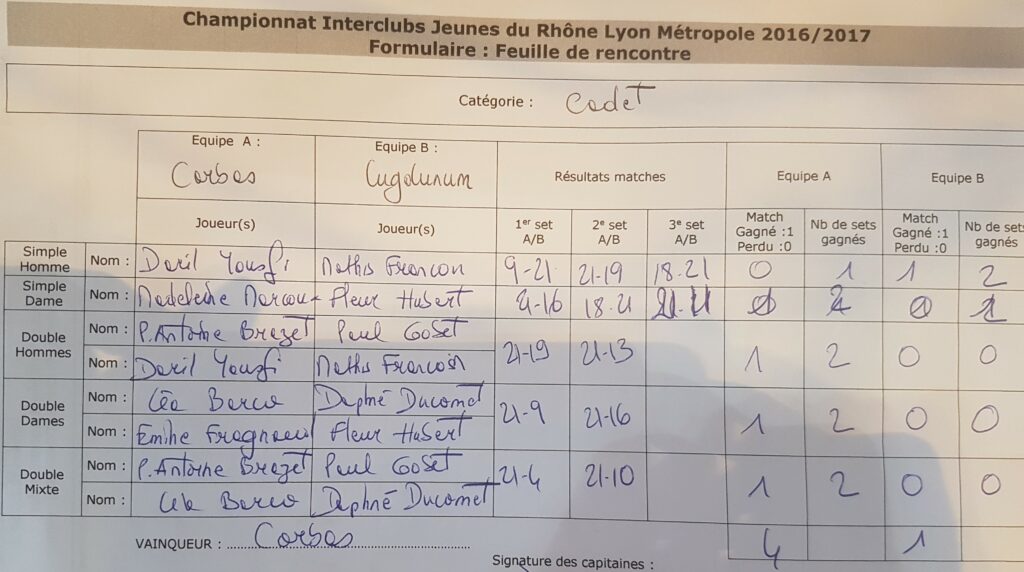 Championnat Interclubs Jeunes du Rhône Lyon Métropole 2016/2017
Formulaire : Feuille de rencontre
Catégorie : Cadet
Equipe A : Corbas Equipe B : Lugdunum Résultats matches Equipe A Equipe B
Joueur(s) Joueur(s) 1er set A/B 2e set A/B 3e set A/B Match Gagné :1 Perdu :0 Nb de sets gagnés Match Gagné :1 Perdu :0 Nb de sets gagnés
Simple Homme Nom : Daril Yousfi Mathis Francon 9-21 21-19 18-21 0 1 1 2
Simple Dame Nom : Madeleine Fleur Hubert 21-16 18-21
Double Hommes Nom : P.Antoine Brazet Paul Goset 21-19 21-13 1 2 0 0
Nom : Daril Yousfi Mathis Francon
Double Dames Nom : Léa Daphné Ducomet 21-9 21-16 1 2 0 0
Nom : Fleur Hubert
Double Mixte Nom : P.Antoine Brazet Paul Goset 21-4 21-10 1 2 0 0
Nom : Léa Daphné Ducomet
VAINQUEUR : Corbas 4 1
Signature des capitaines :